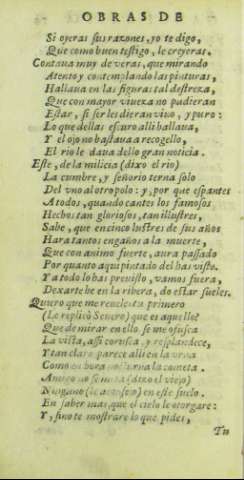 OBRAS DE
Si oyeras sus razones, yo te digo,
Que como buen testigo, le creyeras.
Contaua muy de veras, que mirando
Atento y contemplando las pinturas,
Hallaua en las figuras tal destreza,
Que con mayor viueza no pudieran
Estar, si ser les dieran viuo, y puro:
Lo que dellas escuro alli hallaua,
Y el ojo no bastaua a recogello,
El rio le daua dello gran noticia.
Este, de la milicia (dixo el rio)
La cumbre, y señorio terna solo
Del vno al otro polo: y, por que espantes
A todos, quando cantes los famosos
Hechos tan gloriosos, tan illustres,
Sabe, que en cinco lustres de sus años
Hara tantos engaños a la muerte,
Que con animo fuerte, aura passado
Por quanto aqui pintado del has visto.
Ya todo lo has preuisto, vamos fuera,
Dexarte he en la ribera, do estar sueles.
Quiero que me reueles tu primero
(Le replicò Seuero) que es aquello?
Que de mirar en ello se me ofusca
La vista, assi corusca, y resplandece,
Y tan claro parece alli en la vrna
Como en hora nocturna la cometa.
Amigo no se meta (dixo el viejo)
Ninguno (le en este suelo.
En saber mas que el cielo le otorgare:
Y, sino te mostrare lo que pides,
Tu